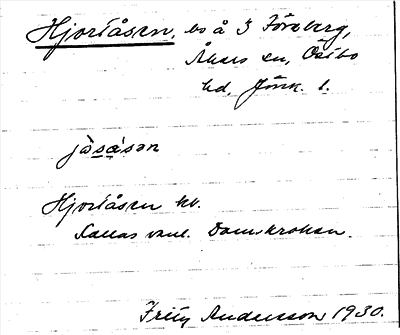 Hjortåsen, bs å 3 Forsberg,
Åkers sn, Östbo
hd, Jönk. l.
jòsa̠sən
Hjortåsen hv.
Kallas vanl. Damskroken.
Fritz Andersson 1930.